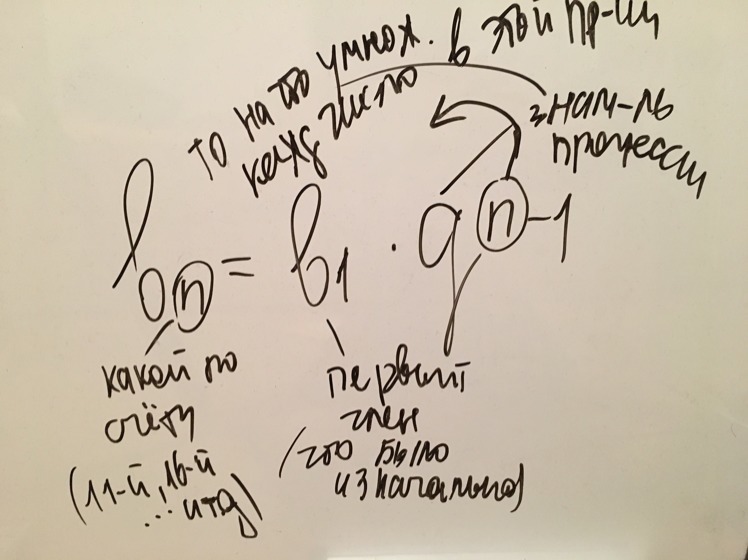 то на что умнож. в этой пр-ии
кажд число
знам-ль
прогрессии
bn = b1 · q n-1
какой по
счёту
(11-й, 16-й
... итд)
первый
член
(что было
изначально)